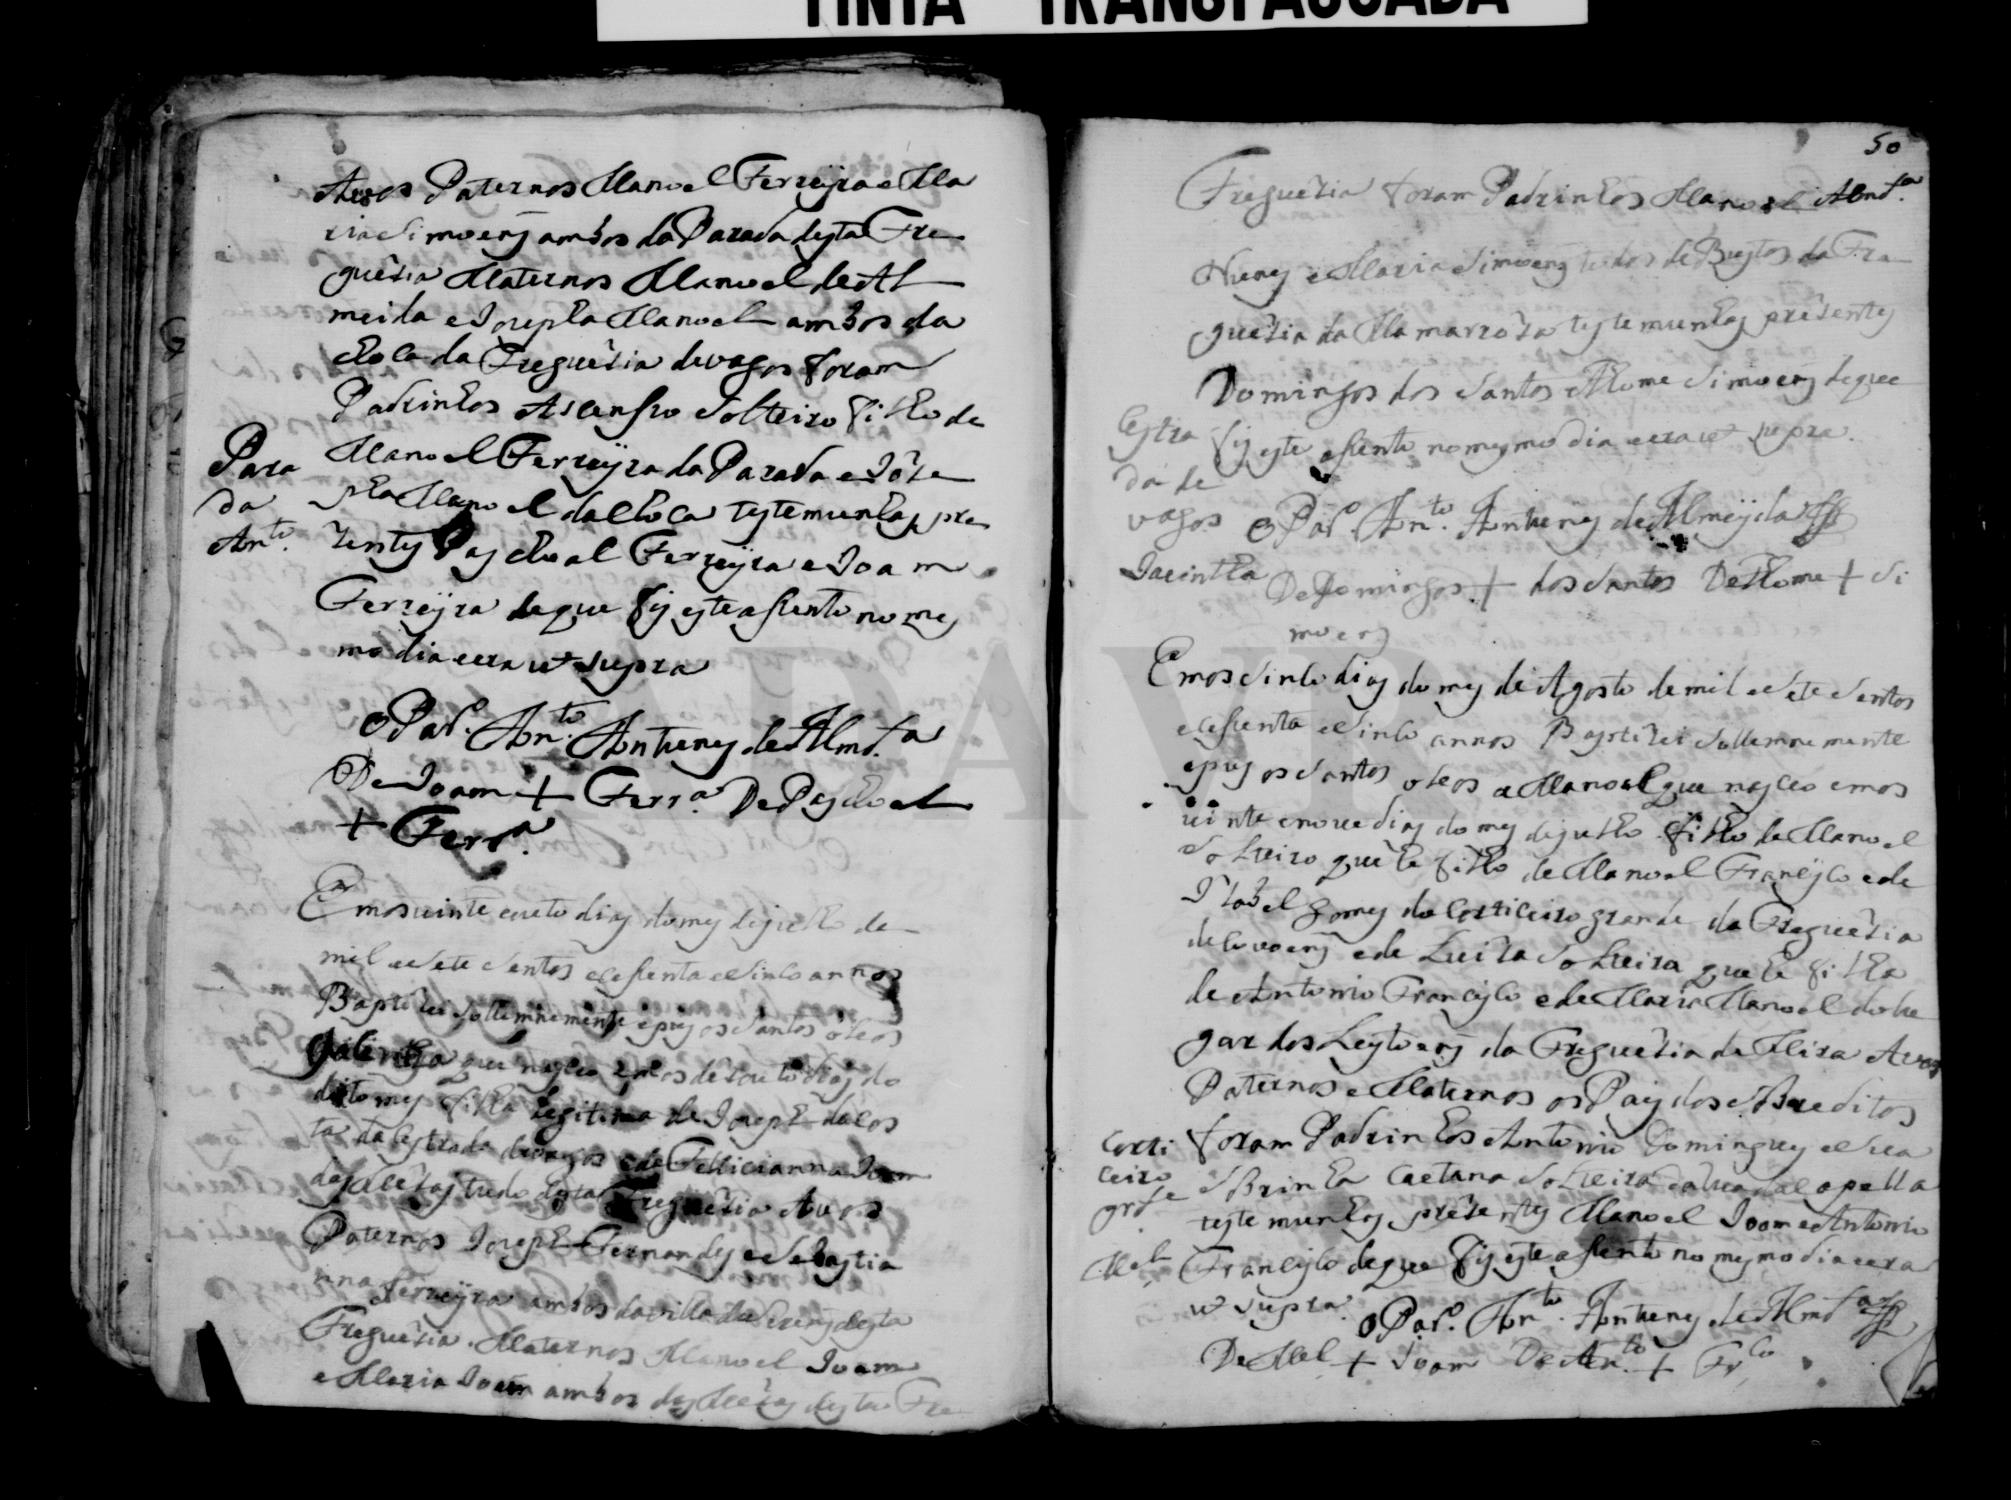 TINTA TRANSPASSADA
Avos Paternos Manoel Ferreÿra e Ma
ria Simoens ambos da Parada desta Fre
guezia Maternos Manoel de Al
meida e Josepha Manoel ambos da
choca da Freguezia de vagos foram
Padrinhos Ascenso Solteiro filho de
Manoel Ferreÿra da Parada e Joze
pha Manoel da choca testemunhas pre
zentes Paschoal Ferreÿra e Joam
Ferreÿra de que fis este asento no mes
mo dia e era ut supra
O Par.º An.to Antunes de Almd.a
De Joam + Ferr.a De Paschoal
+ Ferr.a
Para
da
An.to
Emos vinte e outo dias do mes de julho de
mil e sete sentos e cesenta e sinco annos
Baptizei sollemnemente e pus os santos oleos
a Jacintha que nasceo emos dezouto dias do
dito mes filha legitima de Joseph da Cos
ta da Estrada de vagos e de Felliciana Joam
das Mezas tudo desta Freguezia Avos
Paternos Joseph Fernandes e Sebastia
nna Ferreÿra ambos da villa de Serens desta
Freguezia. Maternos Manoel Joam
e Maria Joam ambos das Mezas desta Fre
50
Freguezia foram Padrinhos Manoel Almd.a
Nunes e Maria Simoens todos de Bustos da Fre
guezia da Mamarroza testemunhas prezentes
Domingos dos Santos e Thome Simoens de que
fis este asento no mesmo dia e era ut supra.
O Par.º An.to Antunes de Almeÿda
De Domingos + dos Santos De Thome + Si
moens
Estra
da de
vagos
Jacintha
Emos sinco dias do mes de Agosto de mil e sete sentos
e cesenta e sinco annos Baptizei sollemnemente
e pus os santos oleos a Manoel que nasceo emos
vinte e nove dias do mes de julho filho de Manoel
Solteiro que he filho de Manoel Francisco e de
Izabel Gomes do Corticeiro grande da Freguezia
de Covoens e de Luiza Solteira que he filha
de Antonio Francisco e de Maria Manoel do lu
gar dos Leytoens da Freguezia de Mira Avos
Paternos e Maternos os Pays dos sobreditos
foram Padrinhos Antonio Domingues e sua
sobrinha Caetana Solteira da
testemunhas prezentes Manoel Joam e Antonio
Francisco de que fis este asento no mesmo dia e era
ut supra. O Par.º An.to Antunes de Almd.a
De Mel + Joam De An.to + Fr.co
Corti
ceiro
grde
Mel